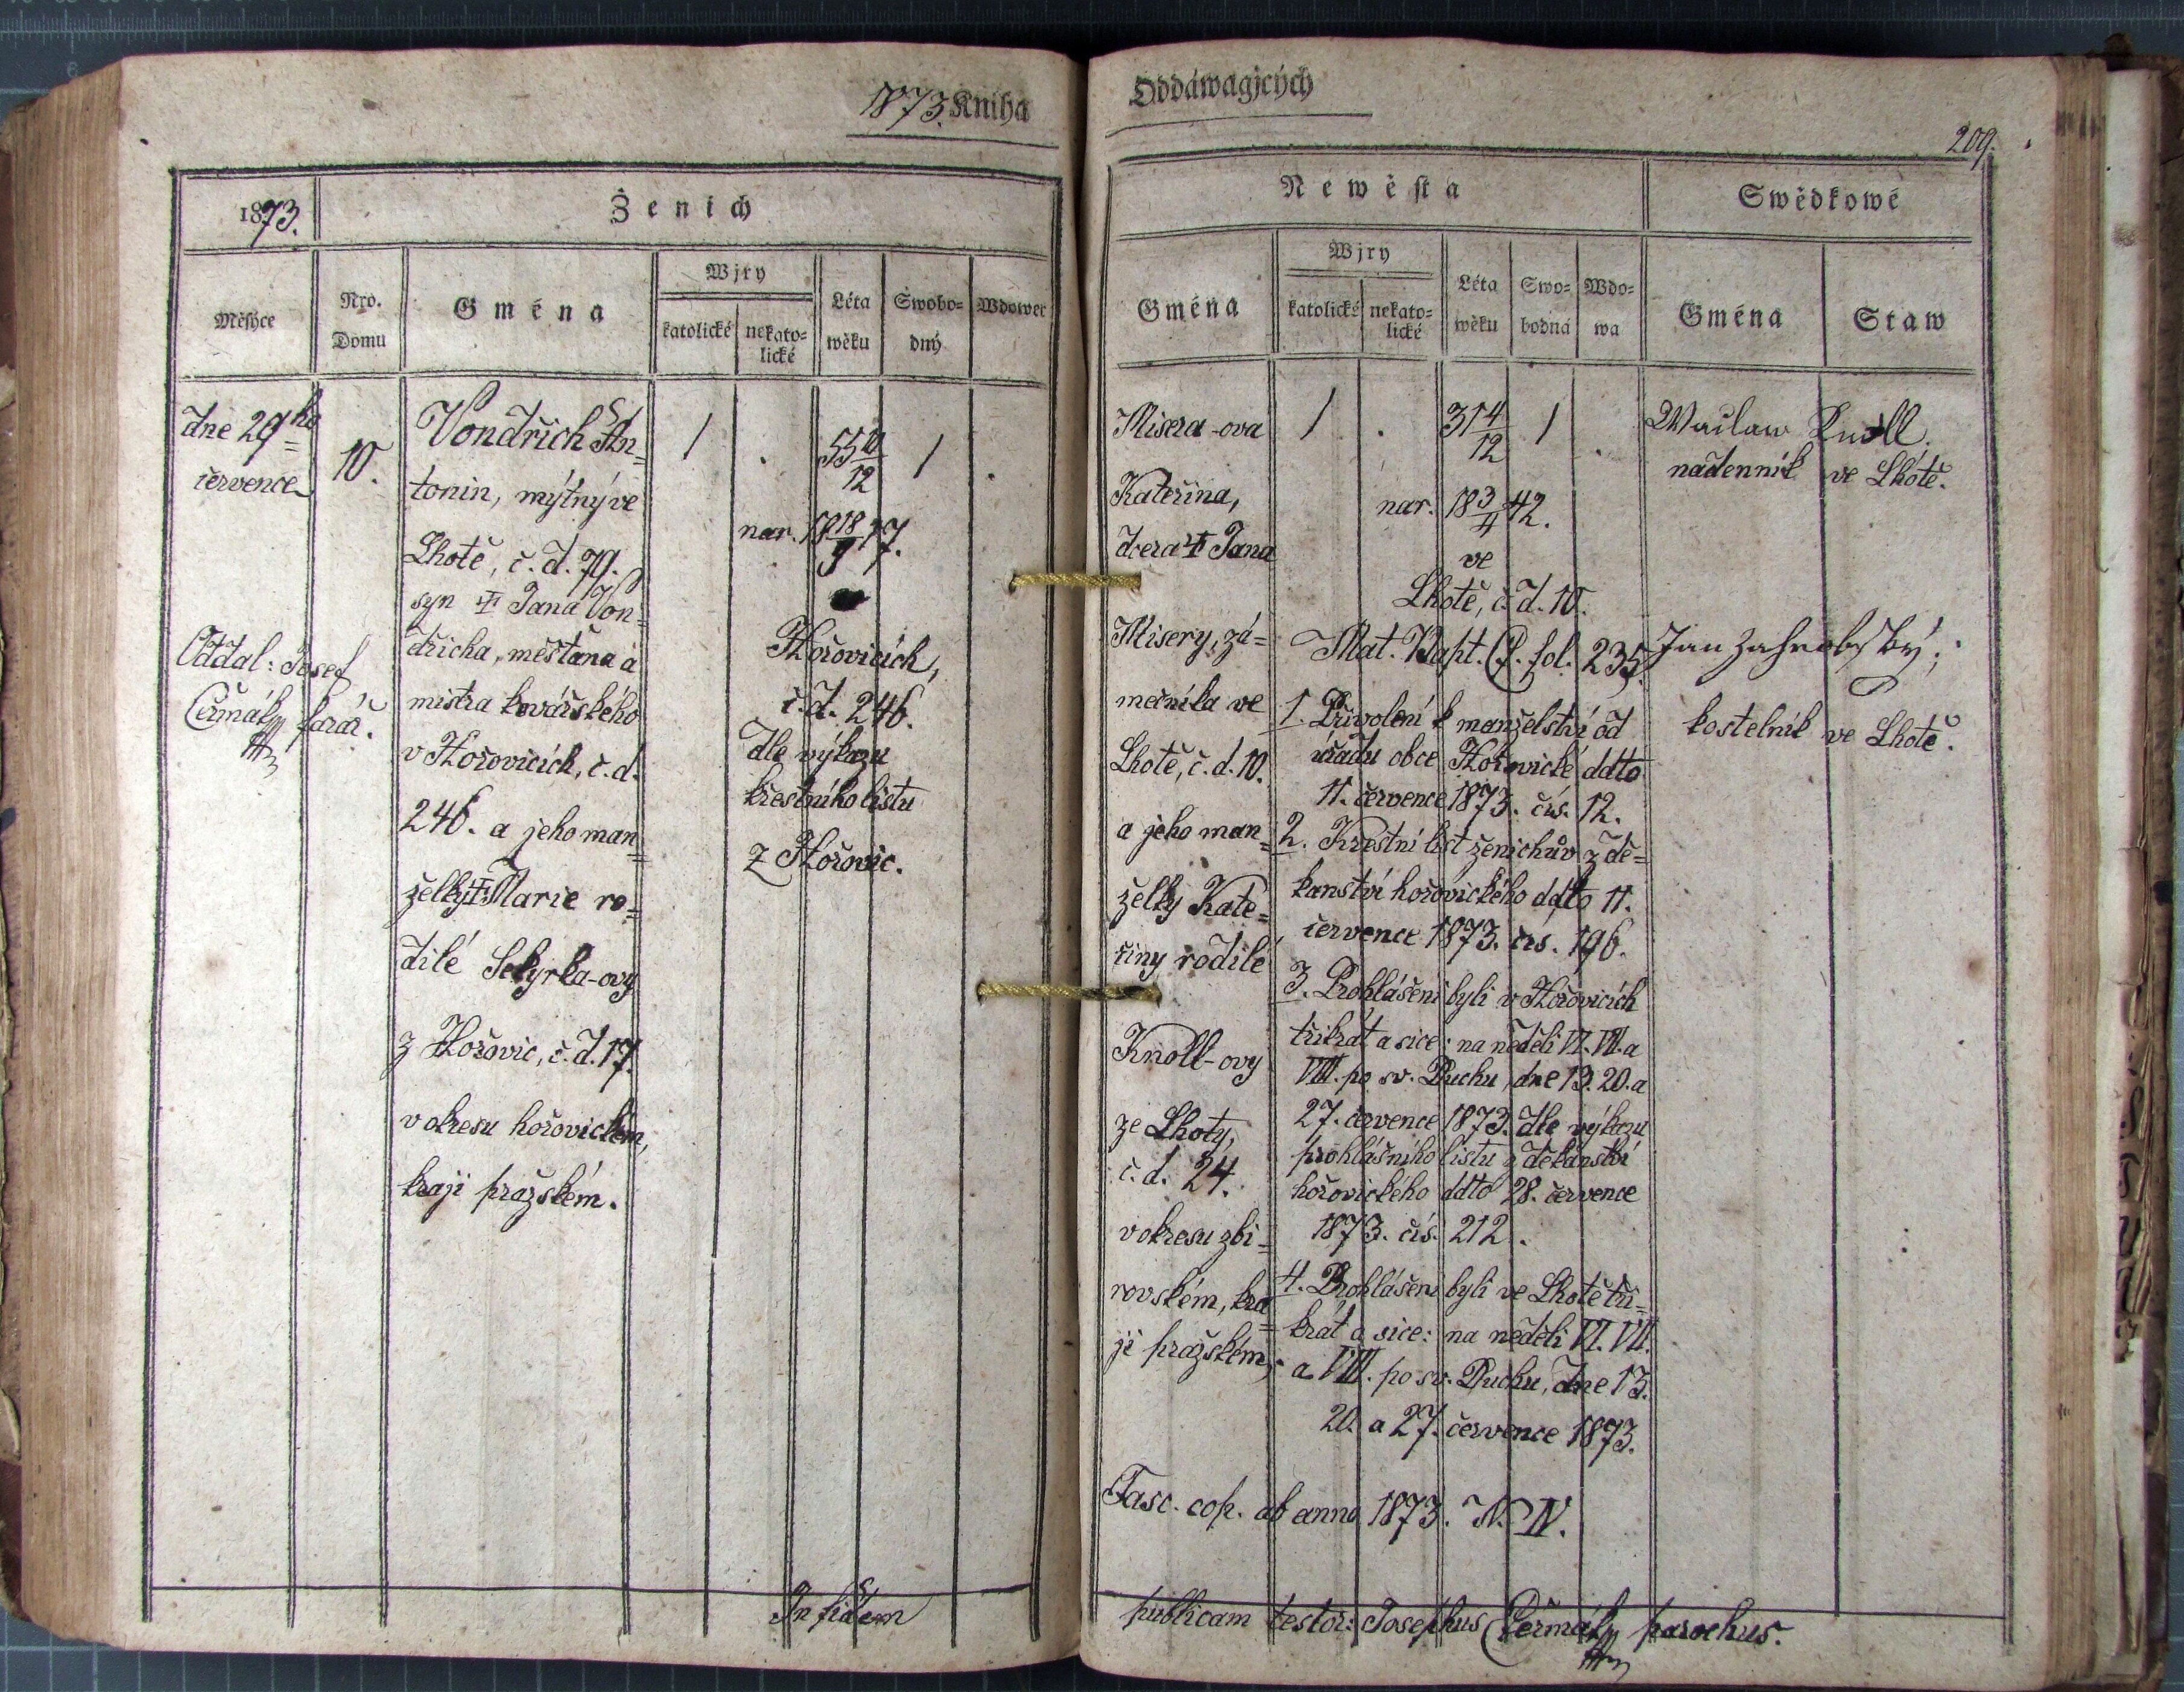 1873. Kniha
1873.
Ženich
Měsýce
Nro.
Domu
Gména
Wjry
katolické
nekato=
lické
Léta
wěku
Swobo=
dný
Wdowec
dne 29ho
července
10.
Vondřich An=
tonin, mýtný ve
Lhotě, č. d. 79.
syn † Jana Von=
dřicha, měštana a
mistra kovářského
v Hořovicích, č. d.
246. a jeho man=
želky † Marie ro=
dilé Sekyrka-ovy
z Hořovic, č. d. 17.
v okresu hořovickém,
kraji pražském.
Oddal: Josef
Čermák, farář.
/
.
55 10/12
/
.
nar. 18 18/9 17.
Hořovicích,
č. d. 246.
dle výkazu
křestního listu
z Hořovic.
In fidem
Oddáwagjcých
209.
Newěsta
Swědkowé
Gména
Wjry
katolické
nekato=
lické
Léta
wěku
Swo=
bodná
Wdo=
wa
Gména
Staw
Misera-ova
Kateřina,
dcera † Jana
Misery, zá=
mečníka ve
Lhotě, č. d. 10.
a jeho man=
želky Kate=
řiny rodilé
Knoll-ovy
ze Lhoty,
č. d. 24.
v okresu zbi=
rovském, kra=
ji pražském;
/
.
31 4/12
/
.
nar. 18 3/4 42.
ve
Lhotě, č. d. 10.
Mat. Bapt. C. fol. 235.
1. Přivolení k manželství od
úřadu obce Hořovické ddto
11. července 1873. čís. 12.
2. Křestní list ženichův z dě=
kanství hořovického ddto 11.
července 1873. čís. 196.
3. Prohlášeni byli v Hořovicích
třikrát a sice: na neděli VI. VII. a
VIII. po sv. Duchu, dne 13. 20. a
27. července 1873. dle výkazu
prohlášního listu z děkanství
hořovického ddto 28. července
1873. čís. 212.
4. Prohlášeni byli ve Lhotě tři=
krát a sice: na neděli VI. VII.
a VIII. po sv. Duchu, dne 13.
20. a 27. července 1873.
Fasc. cop. ab anno 1873. N. IV.
Waclaw Knoll.
nadenník ve Lhotě.
Jan Zahrobský;
kostelník ve Lhotě.
publicam testor: Josephus Čermák, parochus.